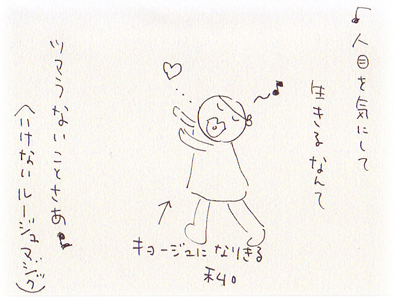 ♪人目を気にして
生きるなんて
ツマラないことさあ♪
(いけないルージュマジック)
キョージュになりきる
私。